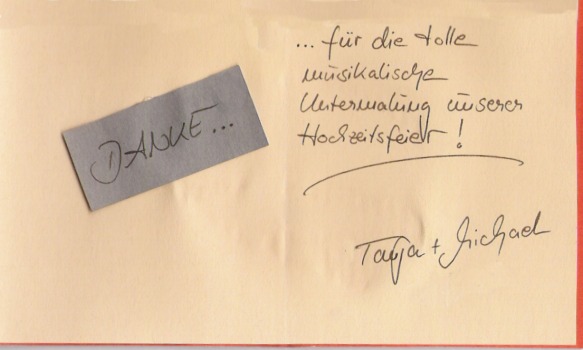 DANKE...
... für die tolle
musikalische
Untermalung unserer
Hochzeitsfeier!
Tanja + Michael